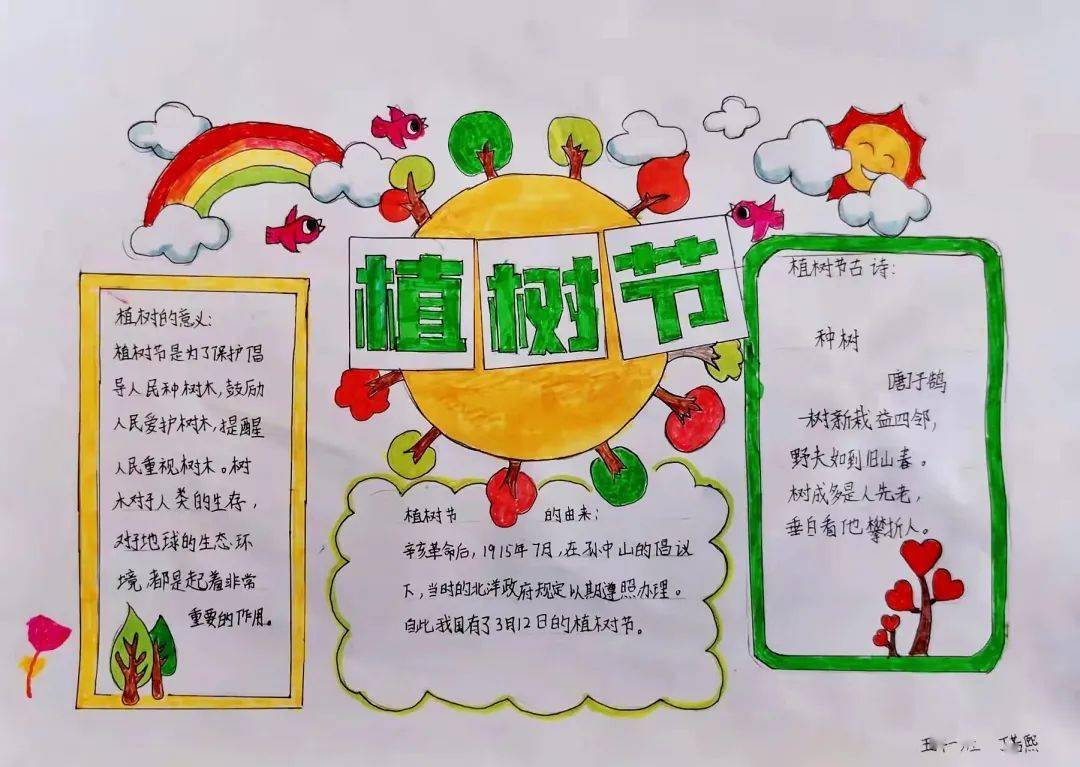 植树节
植树的意义:
植树节是为了保护倡
导人民种树木,鼓励
人民爱护树木,提醒
人民重视树木。树
木对于人类的生存,
对于地球的生态环
境,都是起着非常
重要的作用。
植树节 的由来:
辛亥革命后,1915年7月,在孙中山的倡议
下,当时的北洋政府规定以期遵照办理。
自此我国有了3月12日的植树节。
植树节古诗:
种树
唐于鹄
一树新栽益四邻,
野夫如到旧山春。
树成多是人先老,
垂白看他攀折人。